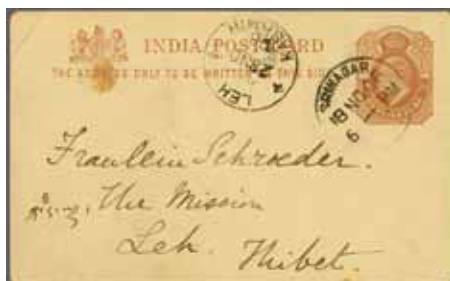 INDIA POST CARD
THE ADDRESS ONLY TO BE WRITTEN ON THIS SIDE
LEH
SRINAGAR
18 NO
6 PM
Fraulein Schroeder.
The Mission
Leh. Thibet.